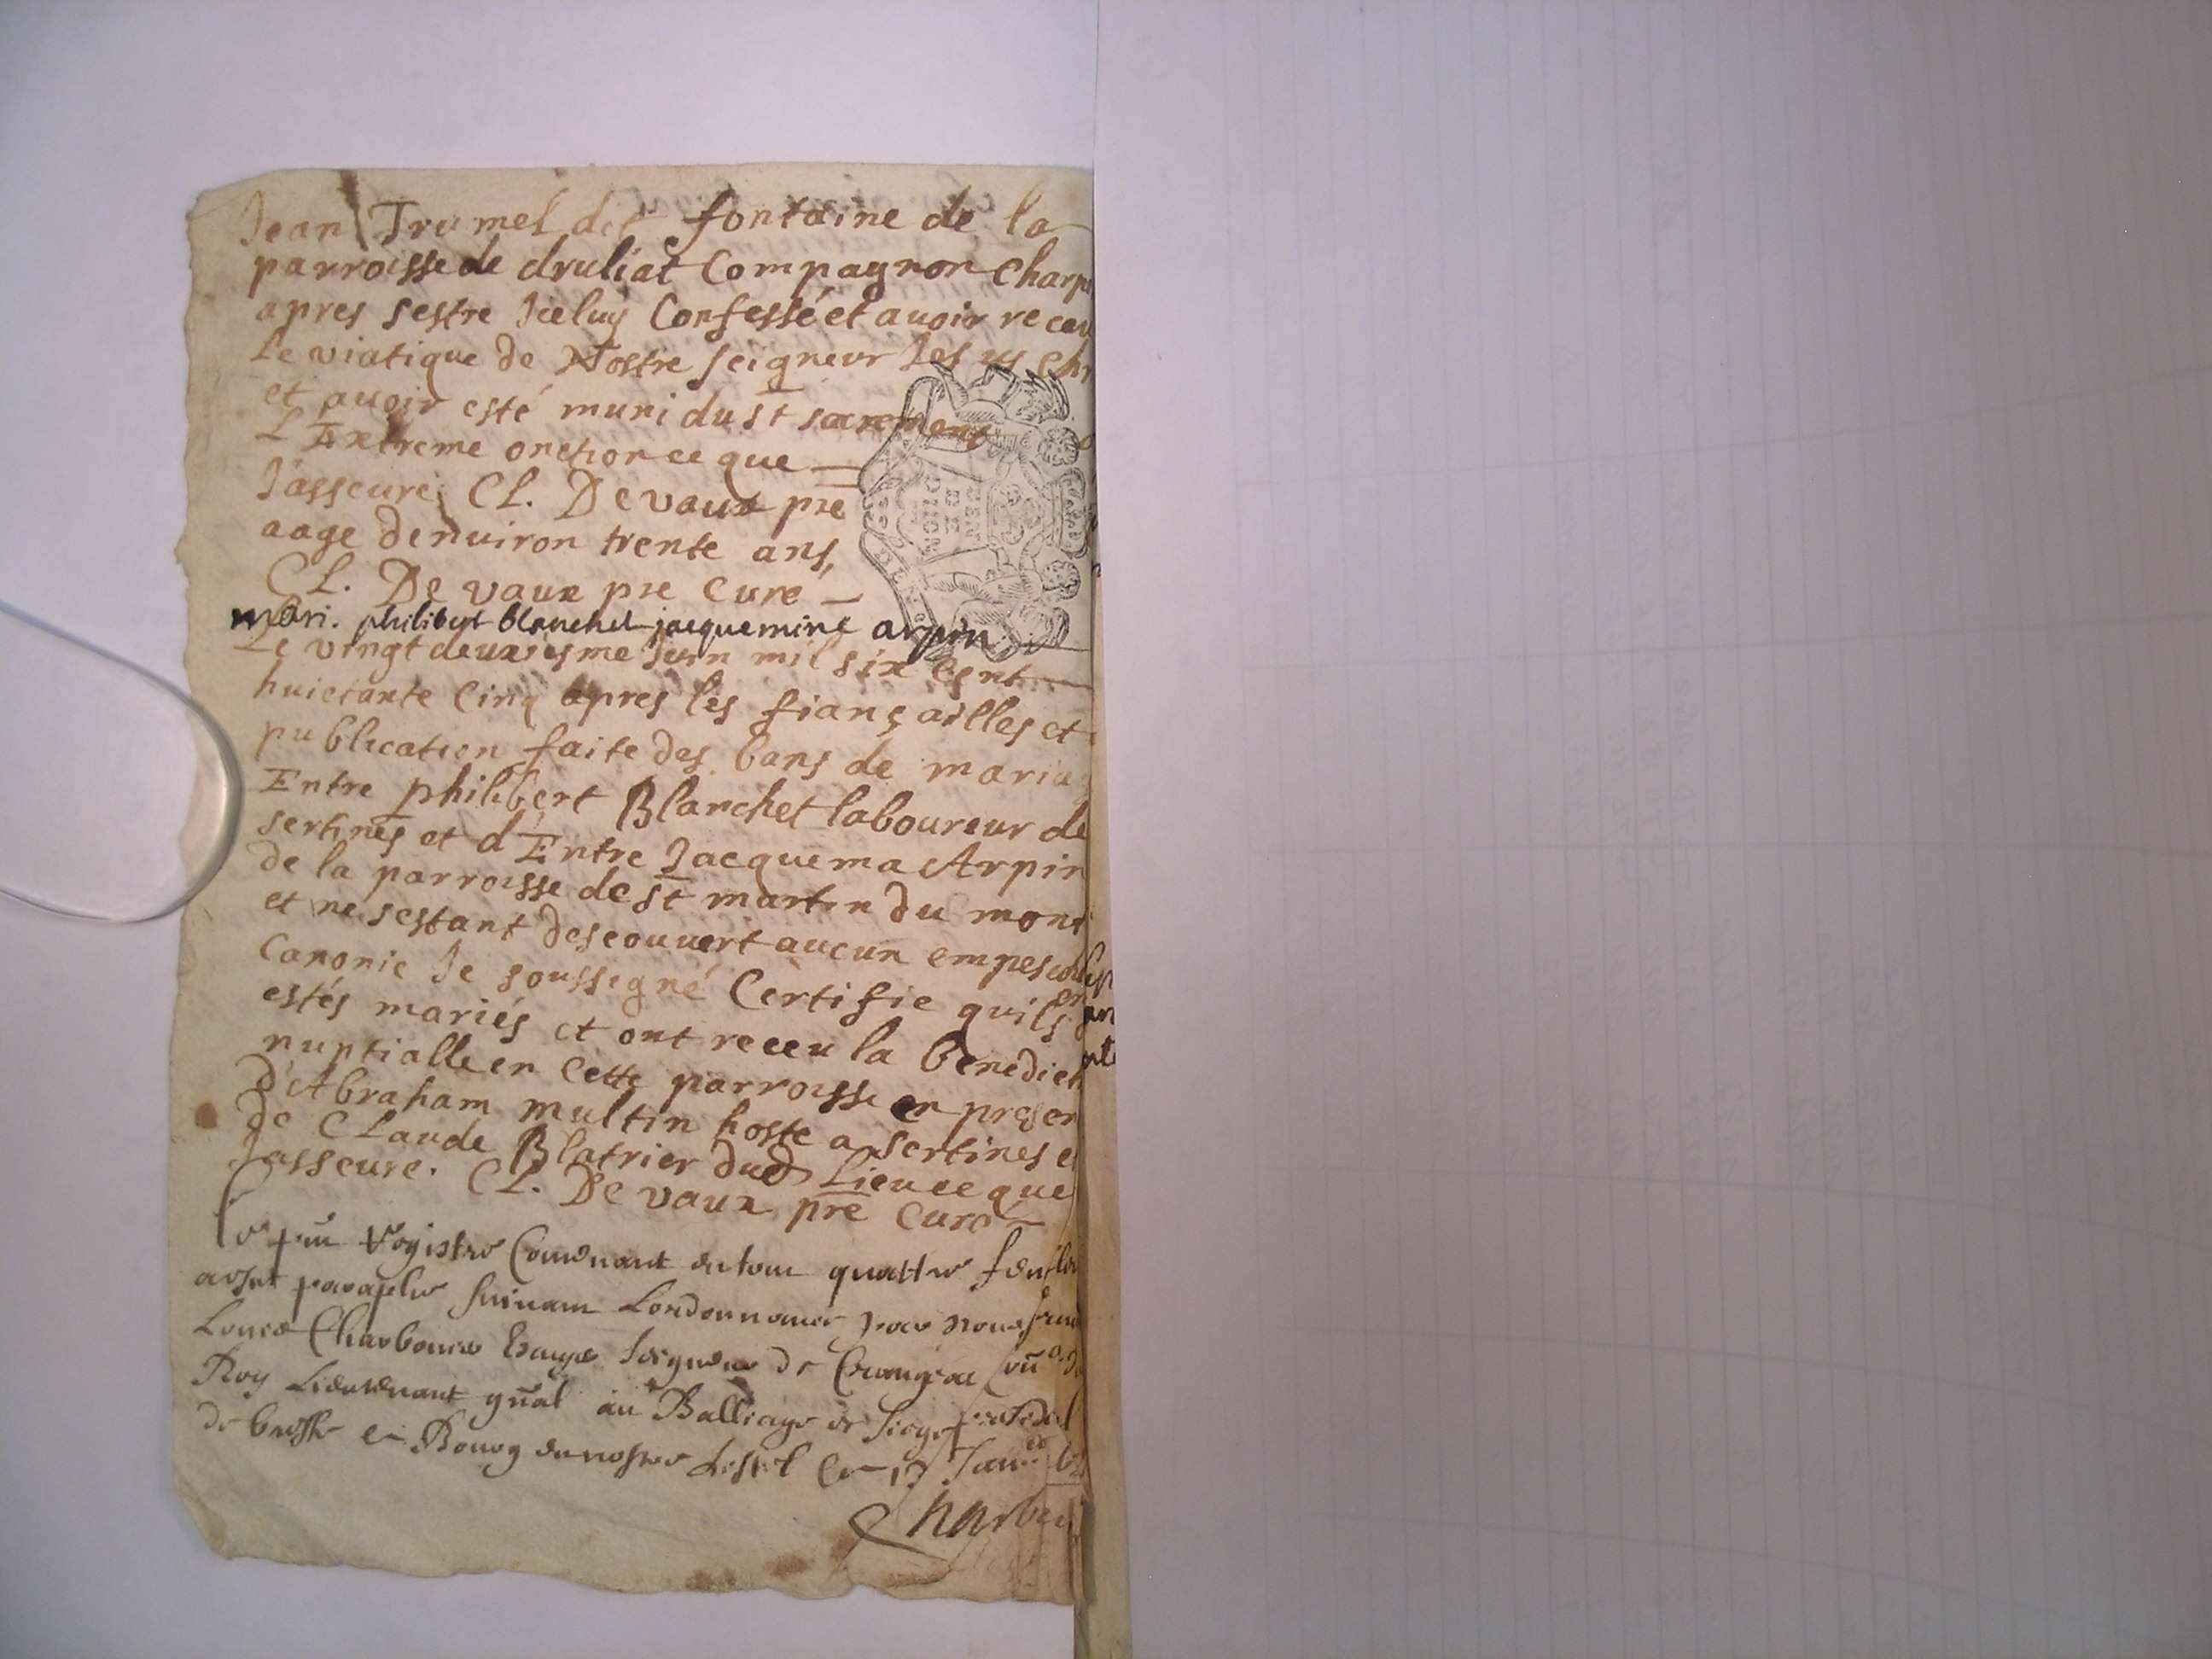 Jean Trumel dit fontaine de la
parroisse de druliat Compagnon Charp
apres sestre Iceluy Confessé et auoir receu
Le viatique de Nostre seigneur Jesus Chr
et auoir esté muni du st sacrement
L'Extreme onction ce que
J'asseure CL. Devaux pre
aage denuiron trente ans,
CL. Devaux pre Curé
mari. philibert blanchet jacquemine arpin
Le vingt deuxiesme juin mil six Cent
huictante Cinq apres les fiançailles et
publication faite des bans de maria
Entre philibert Blanchet laboureur de
sertines et d'Entre Jacquema Arpin
de la parroisse de st martin du mont
et ne sestant descouuert aucun empesch
Canonic Je soussegné Certifie quils
estés mariés et ont receu la benedict
nuptialle en Cette parroisse en presen
d'Abraham multin hoste a sertines e
de CLaude Blatrier dud Lieu ce que
Jasseure. CL. Devaux pre Curé
Le pnt Registre Contenant en tout quattre feuille
a esté paraphé suiuant Lordonnance par nous
Louis Charbonnier Escuyer Seigneur de Crangeac
Roy Lieutenant gnal au Balliage et siege presidial
de bresse en Bourg en nostre hostel Ce 13
Charbon
DIION